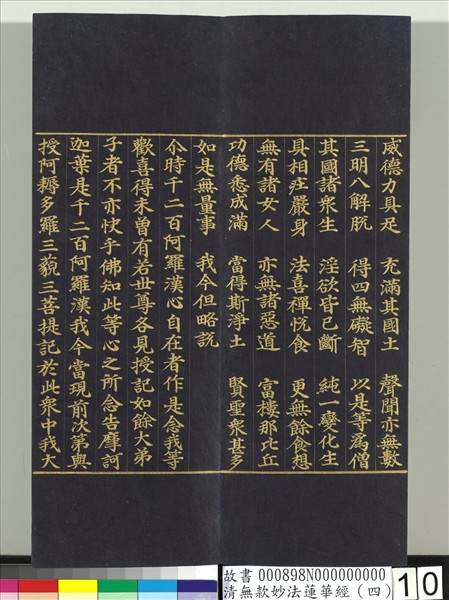 威德力具足　充滿其國土　聲聞亦無數
三明八解脫　得四無礙智　以是等為僧
其國諸衆生　淫欲皆已斷　純一變化生
具相莊嚴身　法喜禪悅食　更無餘食想
無有諸女人　亦無諸惡道　富樓那比丘
功德悉成滿　當得斯淨土　賢聖衆甚多
如是無量事　我今但略說
尒時千二百阿羅漢心自在者作是念我等
歡喜得未曾有若世尊各見授記如餘大弟
子者不亦快乎佛知此等心之所念告摩訶
迦葉是千二百阿羅漢我今當現前次第與
授阿耨多羅三藐三菩提記於此衆中我大
故書 000898N000000000
清無款妙法蓮華經（四）
10